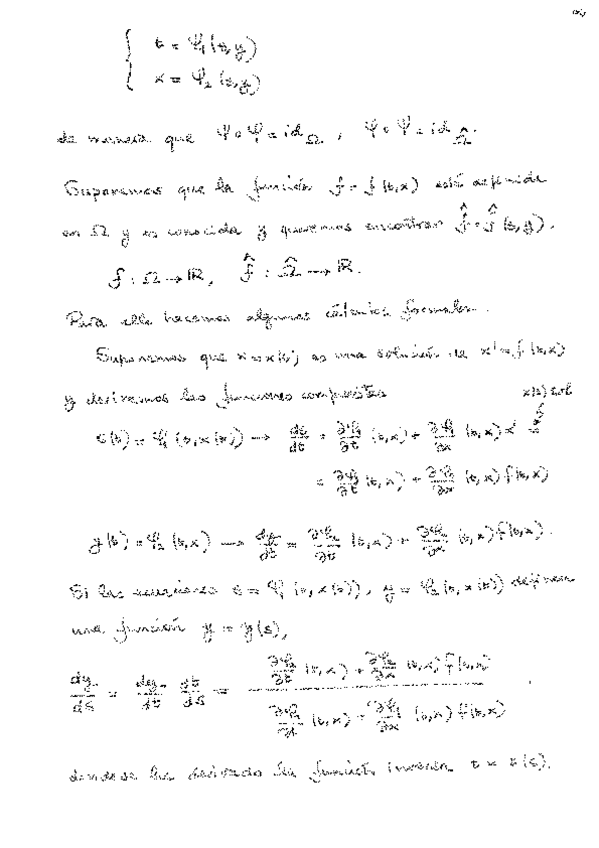 t = Ψ₁(s,y)
x = Ψ₂(s,y)
de manera que Ψ∘φ = id_Ω , φ∘Ψ = id_Ω̂.
Supondremos que la función f = f(t,x) está definida
en Ω y es conocida y queremos encontrar f̂ = f̂(s,y).
f : Ω → ℝ, f̂ : Ω̂ → ℝ.
Para ello hacemos algunos cálculos formales.
Suponemos que x = x(t) es una solución de x' = f(t,x)
y derivamos las funciones compuestas
x(t) sol
s(t) = φ₁(t,x(t)) → ds/dt = ∂φ₁/∂t (t,x) + ∂φ₁/∂x (t,x) x'
= ∂φ₁/∂t (t,x) + ∂φ₁/∂x (t,x) f(t,x)
y(t) = φ₂(t,x) → dy/dt = ∂φ₂/∂t (t,x) + ∂φ₂/∂x (t,x) f(t,x).
Si las ecuaciones s = φ₁(t,x(t)), y = φ₂(t,x(t)) definen
una función y = y(s),
dy/ds = dy/dt dt/ds = (∂φ₂/∂t (t,x) + ∂φ₂/∂x (t,x) f(t,x)) / (∂φ₁/∂t (t,x) + ∂φ₁/∂x (t,x) f(t,x))
donde se ha derivado la función inversa t = t(s).